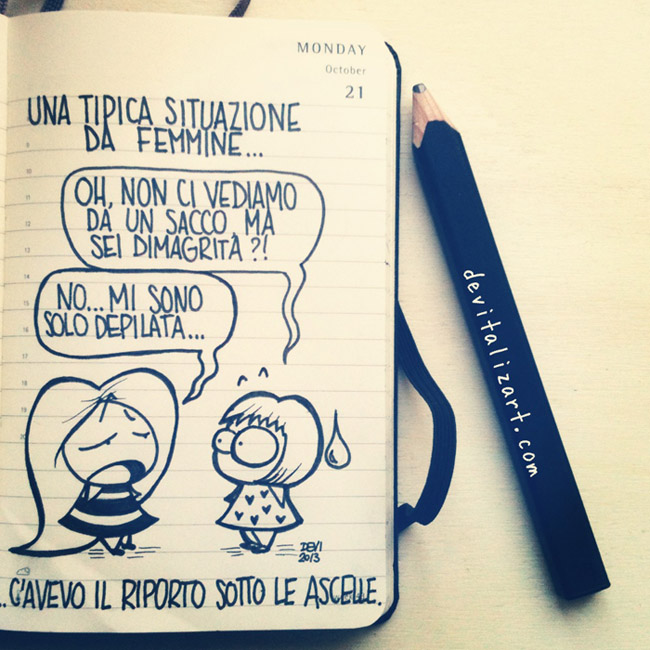 MONDAY
October
21
UNA TIPICA SITUAZIONE
DA FEMMINE...
OH, NON CI VEDIAMO
DA UN SACCO, MA
SEI DIMAGRITA ?!
NO... MI SONO
SOLO DEPILATA...
DEVI
2013
...C'AVEVO IL RIPORTO SOTTO LE ASCELLE.
devitalizart.com